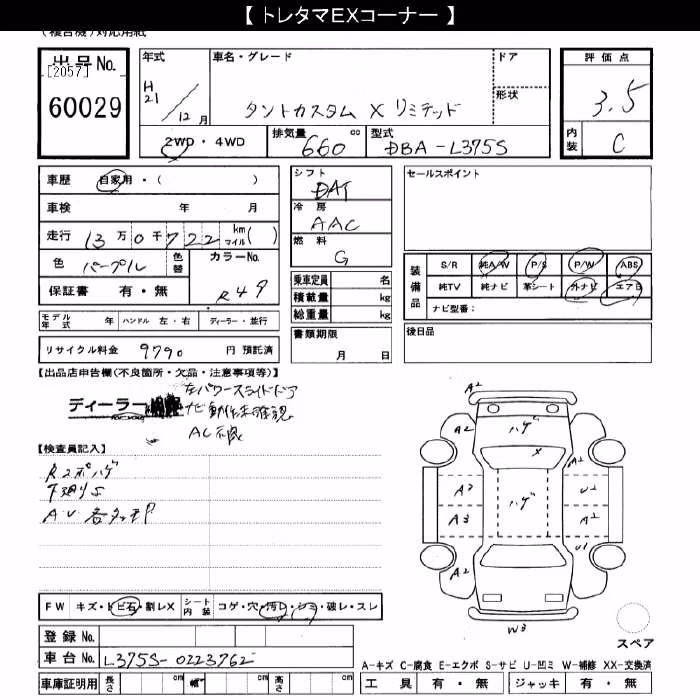 【 トレタマEXコーナー 】
(複合機)対応用紙
出品 No.
[2057]
60029
年式
H21/12月
車名・グレード
タントカスタム X リミテッド
ドア
形状
評価点
3.5
内装
C
2WD・4WD
排気量 660 cc
型式 DBA-L375S
車歴 自家用・( )
車検 年 月
走行 13万0千722 km マイル( )
色 パープル
色替
カラーNo.
R49
保証書 有・無
シフト
DAT
冷房
AAC
燃料
G
乗車定員 名
積載量 kg
総重量 kg
セールスポイント
装備品
S/R 純A/W P/S P/W ABS
純TV 純ナビ 革シート 外ナビ エアB
ナビ型番:
モデル年式 年 ハンドル 左・右 ディーラー・並行
書類期限
月 日
後日品
リサイクル料金 9790 円 預託済
【出品店申告欄(不良箇所・欠品・注意事項等)】
左パワースライドドア
ディーラー
ナビ動作未確認
AC不良
【検査員記入】
下廻りS
FW キズ・トビ石・割レX シート内装 コゲ・穴・汚レ・シミ・破レ・スレ
登録 No.
車台 No. L375S-0223762
車庫証明用 長さ cm 幅 cm 高さ cm
A2
ハゲ
A2
A2
X
A2
A2
ハゲ
U2
A3
A2
U1
A2
A2
W3
スペア
A-キズ C-腐食 E-エクボ S-サビ U-凹ミ W-補修 XX-交換済
工具 有・無 ジャッキ 有・無